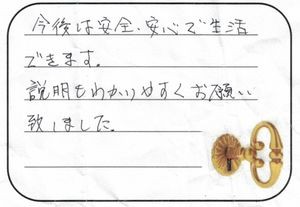 今後は安全、安心で生活
できます。
説明もわかりやすくお願い
致しました。